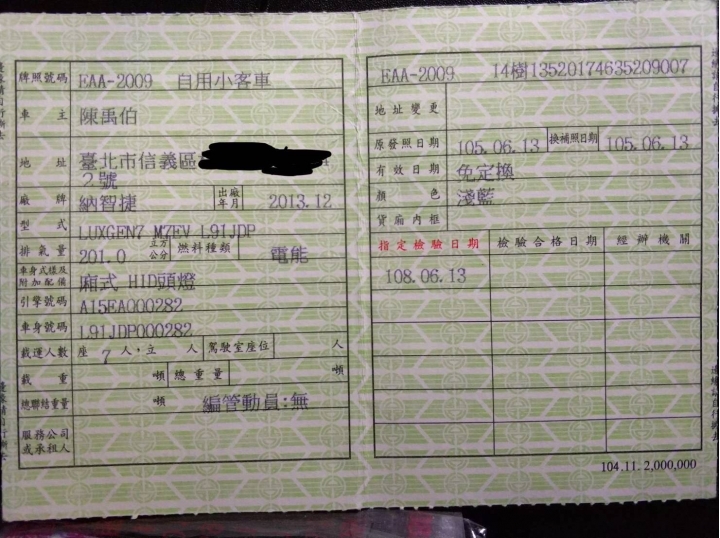 牌照號碼 EAA-2009 自用小客車
車主 陳禹伯
地址 臺北市信義區
2號
廠牌 納智捷 出廠年月 2013.12
型式 LUXGEN7 M7EV L91JDP
排氣量 201.0 立方公分 燃料種類 電能
車身式樣及附加配備 廂式 HID頭燈
引擎號碼 A15EA000282
車身號碼 L91JDP000282
載運人數 座 7 人,立 人 駕駛室座位 人
載重 噸 總重量 噸
總聯結重量 噸 編管動員:無
服務公司或承租人
EAA-2009 14樹13520174635209007
地址變更
原發照日期 105.06.13 換補照日期 105.06.13
有效日期 免定換
顏色 淺藍
貨廂內框
指定檢驗日期 檢驗合格日期 經辦機關
108.06.13
104.11.2,000,000